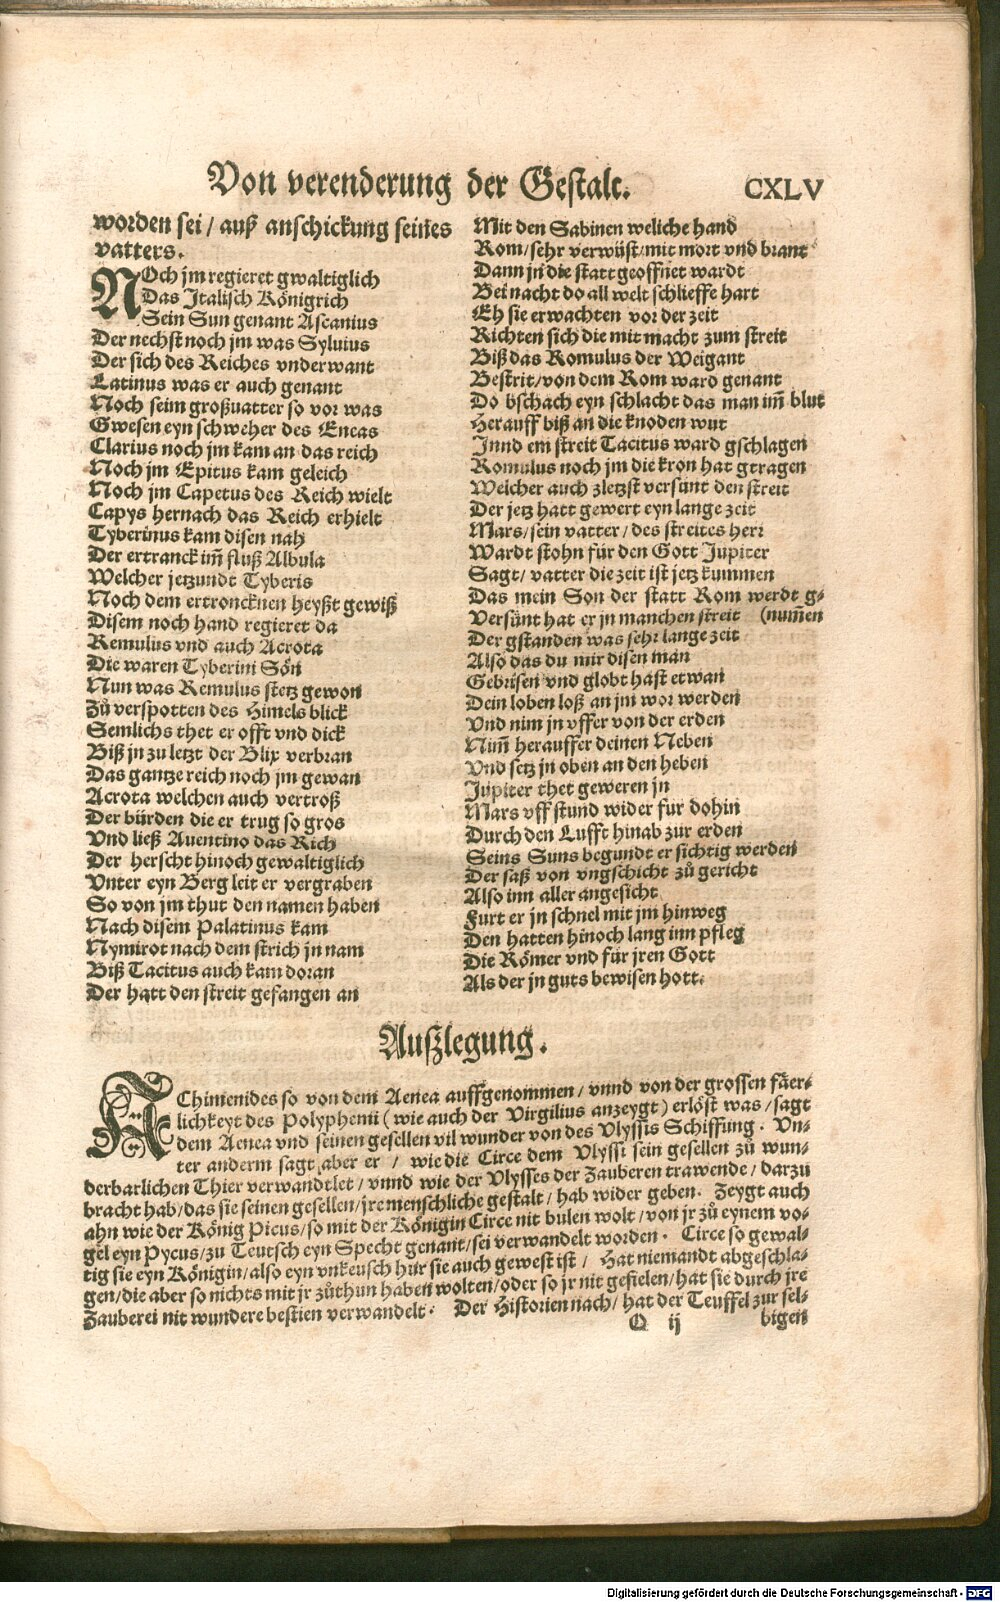 Von verenderung der Gestalt.
CXLV
worden sei / auß anschickung seines
vatters.
NOch jm regieret gwaltiglich
Das Italisch Königrich
Sein Sun genant Ascanius
Der nechst noch jm was Syluius
Der sich des Reiches vnderwant
Latinus was er auch genant
Noch seim großuatter so vor was
Gwesen eyn schweher des Eneas
Clarius noch jm kam an das reich
Noch jm Epitus kam geleich
Noch jm Capetus des Reich wielt
Capys hernach das Reich erhielt
Tyberinus kam disen nah
Der ertranck im̄ fluß Albula
Welcher jetzundt Tyberis
Noch dem ertroncknen heyßt gewiß
Disem noch hand regieret da
Remulus vnd auch Acrota
Die waren Tyberini Sön
Nun was Remulus stetz gewon
Zů verspotten des Himels blick
Semlichs thet er offt vnd dick
Biß jn zu letzt der Blix verbran
Das gantze reich noch jm gewan
Acrota welchen auch vertroß
Der bürden die er trug so gros
Vnd ließ Auentino das Rich
Der herscht hinoch gewaltiglich
Vnter eyn Berg leit er vergraben
So von jm thut den namen haben
Nach disem Palatinus kam
Nymirot nach dem strich jn nam
Biß Tacitus auch kam doran
Der hatt den streit gefangen an
Mit den Sabinen weliche hand
Rom / sehr verwüst / mit mort vnd brant
Dann jn die statt geoffnet wardt
Bei nacht do all welt schlieffe hart
Eh sie erwachten vor der zeit
Richten sich die mit macht zum streit
Biß das Romulus der Weigant
Bestrit / von dem Rom ward genant
Do bschach eyn schlacht das man im̄ blut
Herauff biß an die knoden wut
Innd em streit Tacitus ward gschlagen
Romulus noch jm die kron hat gtragen
Welcher auch zletzst versünt den streit
Der jetz hatt gewert eyn lange zeit
Mars / sein vatter / des streites herr
Wardt stohn für den Gott Jupiter
Sagt / vatter die zeit ist jetz kummen
Das mein Son der statt Rom werdt g-
Versünt hat er jn manchen streit (num̄en
Der gstanden was sehr lange zeit
Also das du mir disen man
Gebrisen vnd globt hast etwan
Dein loben loß an jm wor werden
Vnd nim jn vffer von der erden
Nim̄ herauffer deinen Neben
Vnd setz jn oben an den heben
Jupiter thet geweren jn
Mars vff stund wider fur dohin
Durch den Lufft hinab zur erden
Seins Suns begundt er sichtig werden
Der saß von vngschicht zů gericht
Also inn aller angesicht
Furt er jn schnel mit jm hinweg
Den hatten hinoch lang inn pfleg
Die Römer vnd für jren Gott
Als der jn guts bewisen hott.
Außlegung.
AChimenides so von dem Aenea auffgenommen / vnnd von der grossen fäer-
lichkeyt des Polyphemi ( wie auch der Virgilius anzeygt ) erlöst was / sagt
dem Aenea vnd seinen gesellen vil wunder von des Vlyssis Schiffung. Vn-
ter anderm sagt aber er / wie die Circe dem Vlyssi sein gesellen zů wun-
derbarlichen Thier verwandtlet / vnnd wie der Vlysses der Zauberen trawende / darzu
bracht hab / das sie seinen gesellen / jre menschliche gestalt / hab wider geben. Zeygt auch
ahn wie der König Picus / so mit der Königin Circe nit bulen wolt / von jr zů eynem vo-
gel eyn Pycus / zu Teutsch eyn Specht genant / sei verwandelt worden. Circe so gewal-
tig sie eyn Königin / also eyn vnkeusch hur sie auch gewest ist / Hat niemandt abgeschla-
gen / die aber so nichts mit jr zůthun haben wolten / oder so jr nit gefielen / hat sie durch jre
Zauberei nit wundere bestien verwandelt. Der Historien nach / hat der Teuffel zur sel-
Q ij
bigen
Digitalisierung gefördert durch die Deutsche Forschungsgemeinschaft - DFG